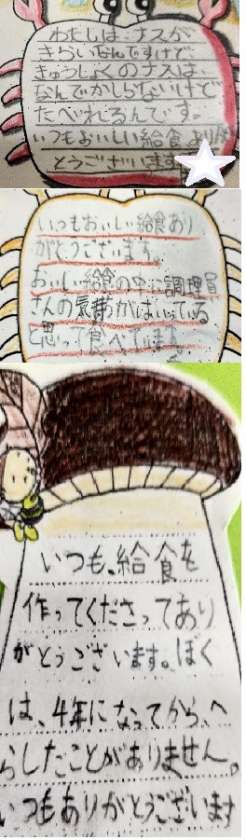 わたしは、ナスが
きらいなんですけど
きゅうしょくのナスは、
なんでかしらないけど
たべれるんです。
いつもおいしい給食あり
とうございます
いつもおいしい給食あり
がとうございます。
おいしい給食の中に調理員
さんの気持ちがはいっている
と思って食べています
いつも、給食を
作ってくださってあり
がとうございます。ぼく
は、4年になってから、へ
らしたことがありません。
いつもありがとうございます